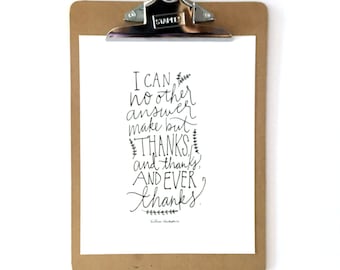 STAPLES
I CAN
no other
answer
make but
THANKS,
and thanks,
AND EVER
thanks.